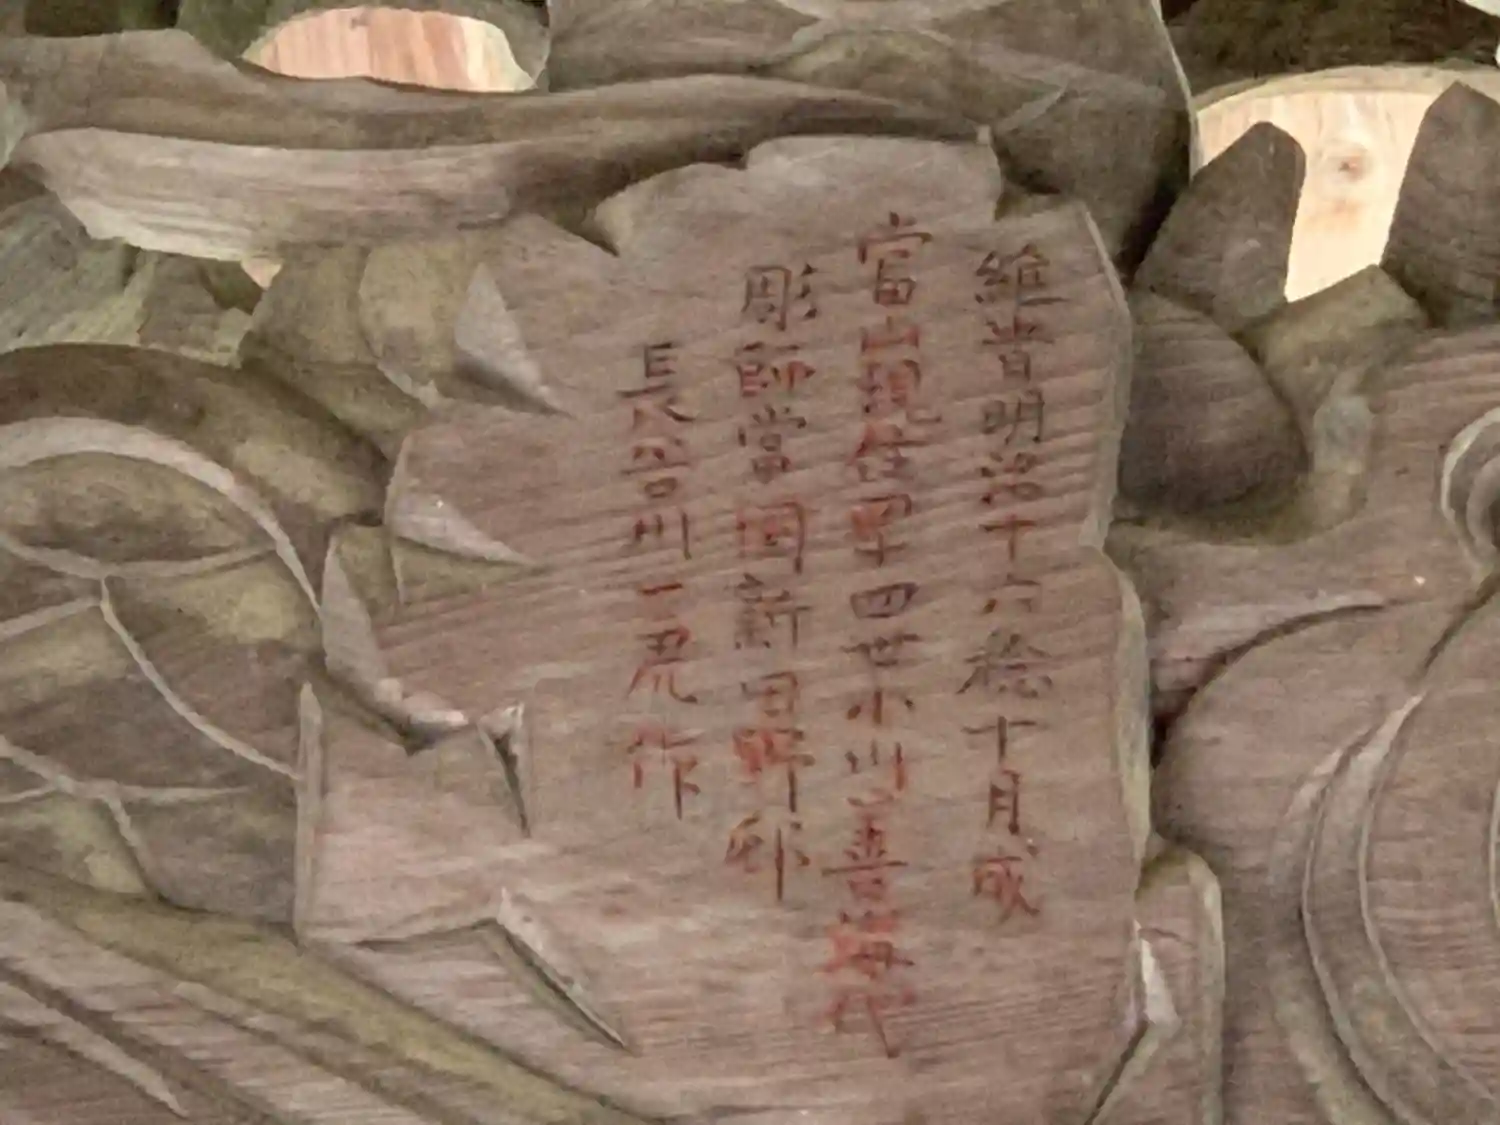 維旹明治十六稔十月成
當山現住四世小川善海代
彫師當國新田野邨
長谷川一作